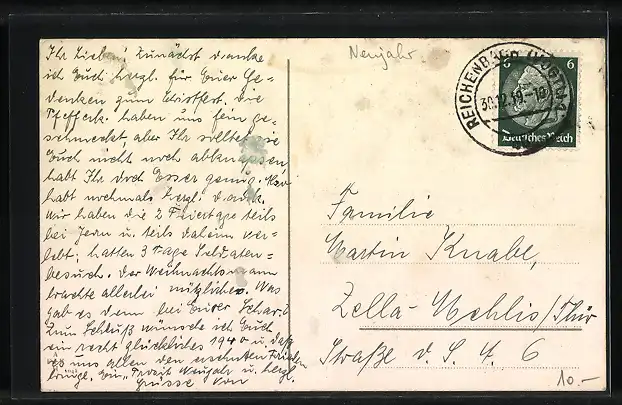 Ihr Lieben! Zunächst danke
ich Euch herzl. für Euer Ge-
denken zum Christfest. Die
Pfefferk. haben uns fein ge-
schmeckt, aber Ihr solltet es
Euch nicht noch abknapsen,
habt Ihr doch Esser genug. Also
habt nochmals herzl. Dank.
Wir haben die 2 Feiertage teils
bei Jenn u. teils daheim ver-
lebt, hatten 3 Tage Soldaten-
besuch. Der Weihnachtsmann
brachte allerlei nützliches. Was
gab es denn bei Eurer Schar?
Zum Schluß wünsche ich Euch
ein recht glückliches 1940 u. daß
es uns allen den ersehnten Frieden
bringe. Ein "Prosit Neujahr" u. herzl.
Grüsse von
Neujahr
REICHENBACH (VOGTL)
30.12.
6 6
Deutsches Reich
Familie
Martin Knabe,
Zella-Mehlis/Thür
Straße d. S. A. 6
10.-